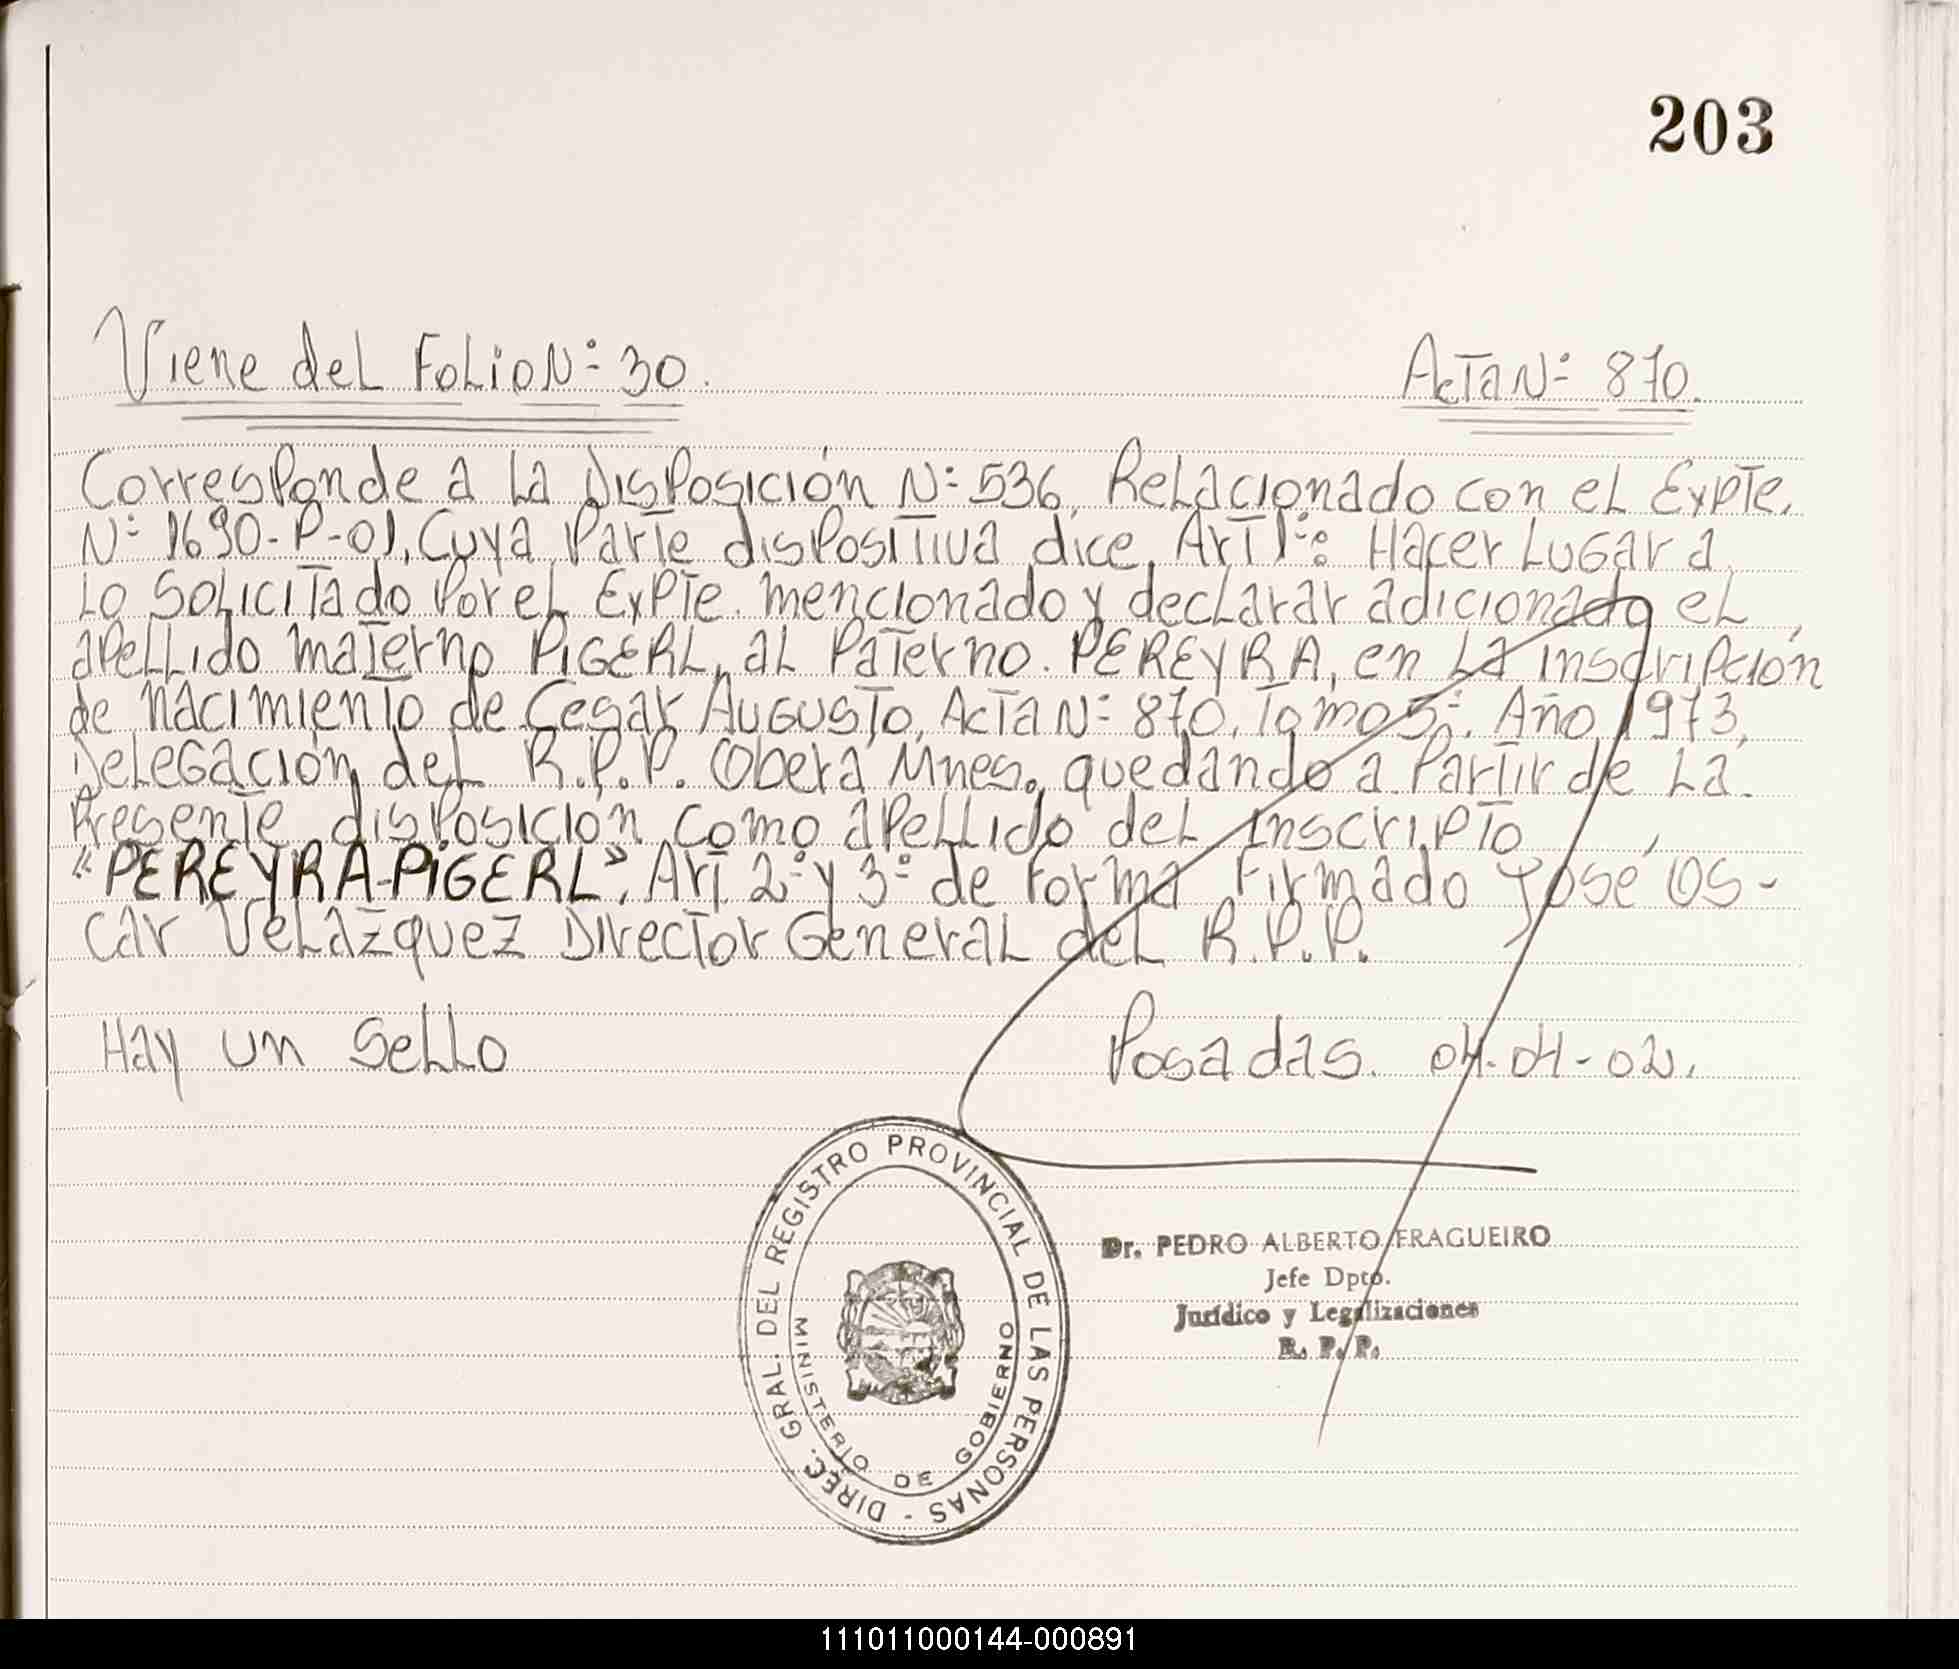 203
Viene del Folio Nº 30. Acta Nº 870.
Corresponde a la Disposición Nº 536, Relacionado con el Expte.
Nº 1690-P-01, Cuya Parte dispositiva dice, Art 1º: Hacer Lugar a
Lo Solicitado Por el Expte. mencionado y declarar adicionado el
apellido materno PIGERL, al Paterno. PEREYRA, en La inscripción
de nacimiento de Cesar Augusto, Acta Nº 870, Tomo 5º, Año 1973,
Delegación del R.P.P. Obera Mnes, quedando a Partir de La
Presente disposición como apellido del inscripto
“PEREYRA-PIGERL”. Art 2º y 3º de Forma Firmado José Os-
car Velázquez Director General del R.P.P.
Hay un Sello Posadas. 04-04-02.
DIREC. GRAL. DEL REGISTRO PROVINCIAL DE LAS PERSONAS -
MINISTERIO DE GOBIERNO
Dr. PEDRO ALBERTO FRAGUEIRO
Jefe Dpto.
Jurídico y Legalizaciones
R. P. P.
111011000144-000891